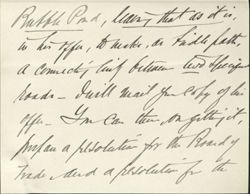 Bubble Pond, leaving that as it is,
in his offer, to make, as bridle path,
a connecting link between two Specific
roads – I will mail you copy of his
offer – You can then, on getting it,
prepare a resolution for the Board of
Trade and a resolution for the